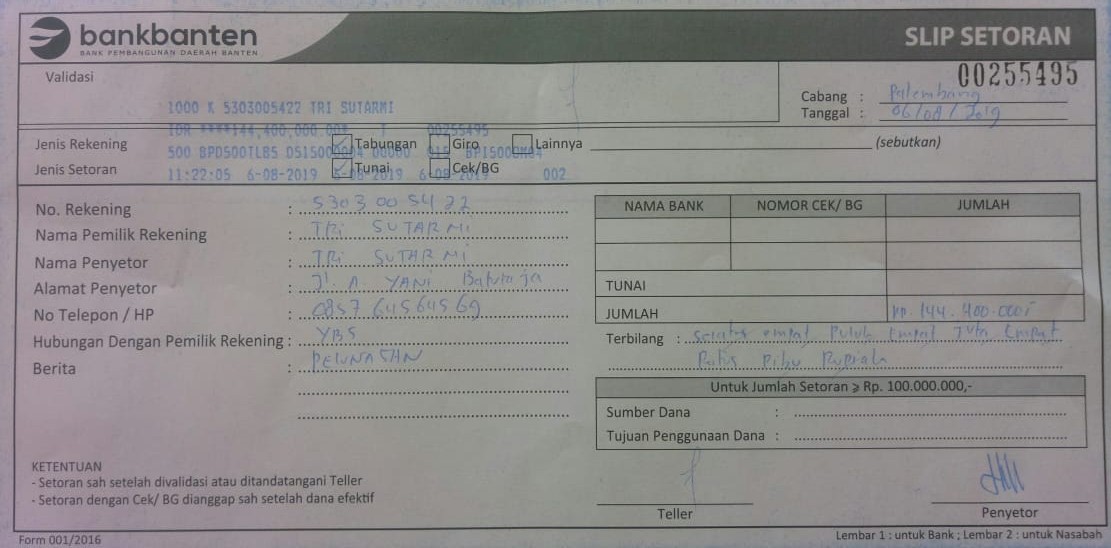 bankbanten
BANK PEMBANGUNAN DAERAH BANTEN
SLIP SETORAN
00255495
Validasi
Cabang : Palembang
Tanggal : 06/08/2019
1000 K 5303005422 TRI SUTARMI
IDR ****144,400,000.00* T 00255495
Jenis Rekening Tabungan Giro Lainnya (sebutkan)
500 BPD500TLBS DS15000004 00000 015 BP15000M04
Jenis Setoran Tunai Cek/BG
11:22:05 6-08-2019 6-08-2019 6-08-2019 002
No. Rekening : 5303005422
Nama Pemilik Rekening : TRi SUTARMi
Nama Penyetor : TRi SUTARMi
Alamat Penyetor : Jl. A. YANi Baturaja
No Telepon / HP : 0857 64564569
Hubungan Dengan Pemilik Rekening : YBS
Berita : PELUNASAN
NAMA BANK NOMOR CEK/ BG JUMLAH
TUNAI
JUMLAH Rp. 144.400.000
Terbilang : Seratus empat Puluh Empat Juta Empat
Ratus Ribu Rupiah
Untuk Jumlah Setoran ⩾ Rp. 100.000.000,-
Sumber Dana :
Tujuan Penggunaan Dana :
KETENTUAN
- Setoran sah setelah divalidasi atau ditandatangani Teller
- Setoran dengan Cek/ BG dianggap sah setelah dana efektif
Teller
Penyetor
Form 001/2016
Lembar 1 : untuk Bank ; Lembar 2 : untuk Nasabah